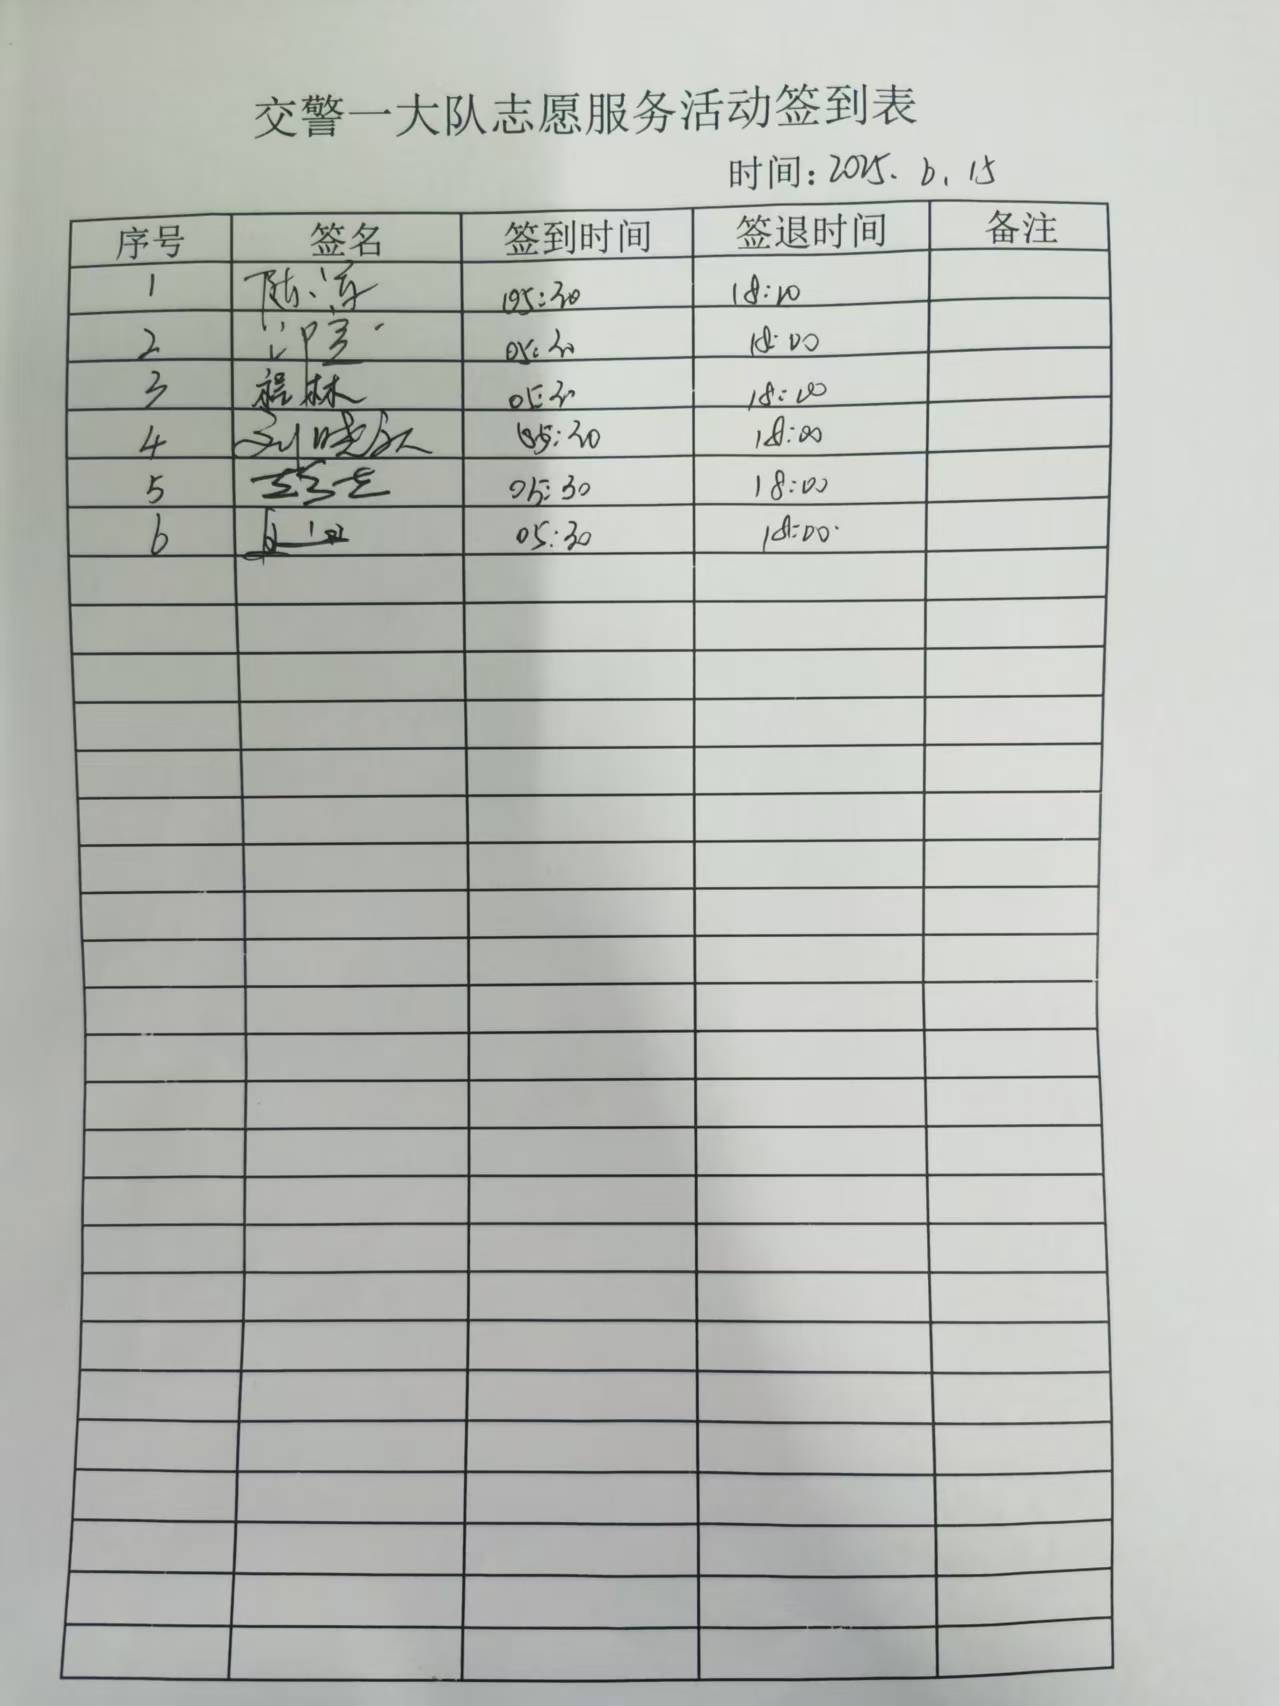 交警一大队志愿服务活动签到表
时间: 2025. 6. 15
序号 签名 签到时间 签退时间 备注
1 05:30 18:00
2 05:30 18:00
3 程林 05:30 18:00
4 刘晓 05:30 18:00
5 05:30 18:00
6 05:30 18:00